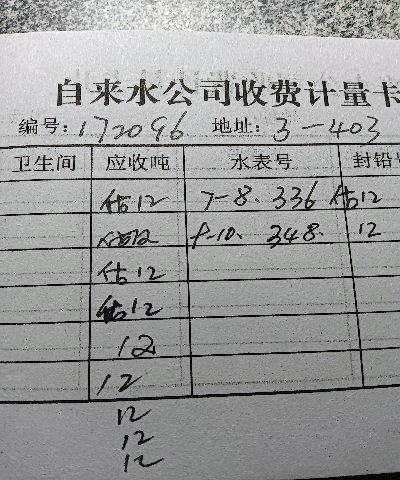 自来水公司收费计量卡
编号:172096 地址:3-403
卫生间 应收吨 水表号 封铅号
估12 7-8、336 估12
估12 9-10、348、 12
估12
估12
12
12
12
12
12